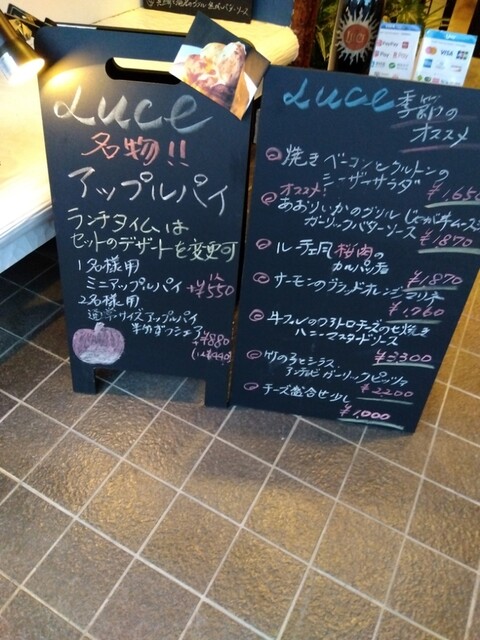 Luce
名物!!
アップルパイ
ランチタイムは
セットのデザートを変更可
1名様用
ミニアップルパイ +¥550
2名様用
通常サイズアップルパイ
半分ずつシェア
+¥880
Luce 季節の
オススメ
焼きベーコンとクルトンの
シーザーサラダ ¥1,650
オススメ!
あおりいかのグリル じゃが芋ムース
ガーリックバターソース ¥1870
ルーチェ風 桜肉の
カルパッチョ ¥1870
サーモンのブラッドオレンジマリネ
¥1,760
牛フィレの
チーズのせ焼き
ハニーマスタードソース
¥3,300
竹の子とシラス
アンチョビガーリックピッツァ
¥2,200
チーズ盛合せ少し
¥1,000